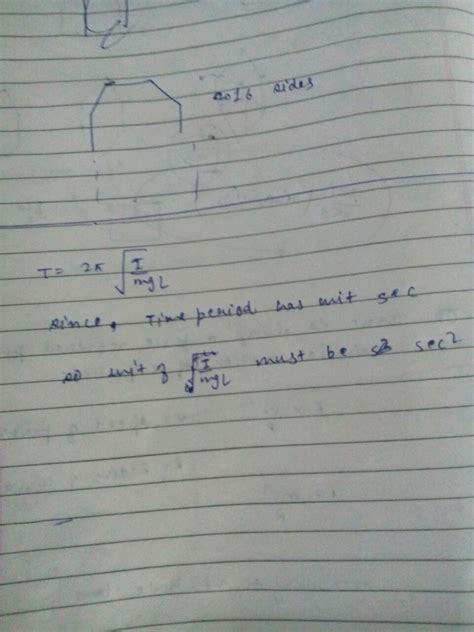 2016 sides
T = 2π √(I/mgL)
since, Time period has unit sec
so unit of √(I/mgL) must be sec2